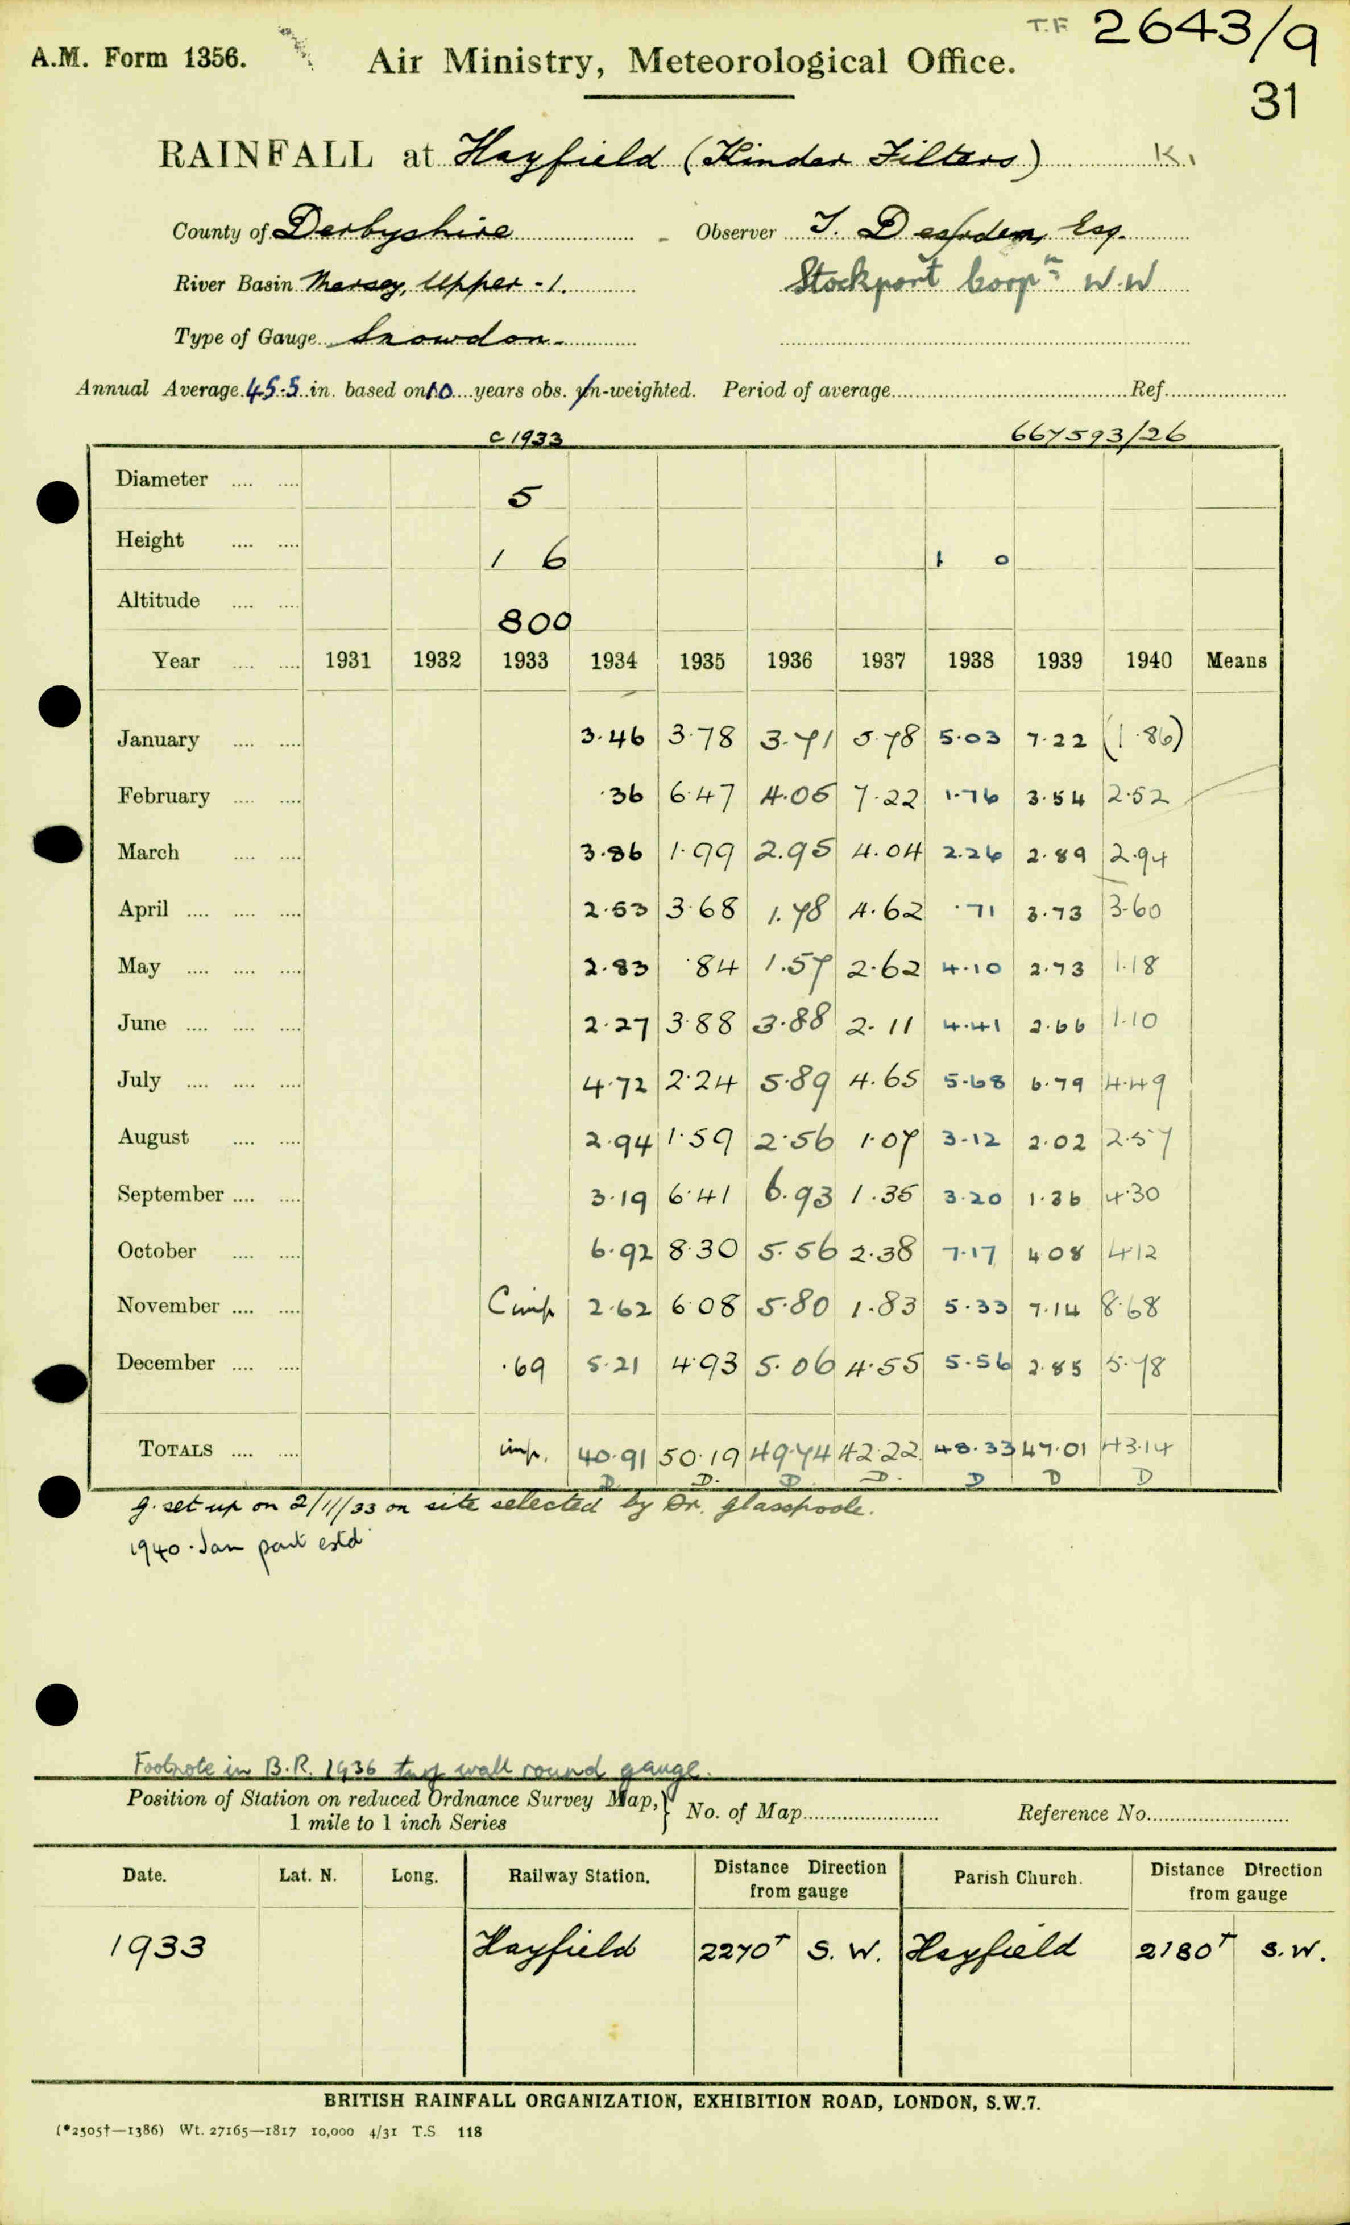 T.F 2643/9
A.M. Form 1356. Air Ministry, Meteorological Office.
31
RAINFALL at Hayfield (Kinder Filters) K1
County of Derbyshire Observer
River Basin Mersey, Upper - 1. Stockport Corpn W.W
Type of Gauge Snowdon
Annual Average 45.5 in. based on 10 years obs. un-weighted. Period of average Ref.
c 1933 667593/26
Diameter 5
Height 1 6 1 0
Altitude 800
Year 1931 1932 1933 1934 1935 1936 1937 1938 1939 1940 Means
January 3.46 3.78 3.71 5.78 5.03 7.22 (1.86)
February .36 6.47 4.05 7.22 1.76 3.54 2.52
March 3.86 1.99 2.95 4.04 2.26 2.89 2.94
April 2.53 3.68 1.78 4.62 .71 3.73 3.60
May 2.83 .84 1.57 2.62 4.10 2.73 1.18
June 2.27 3.88 3.88 2.11 4.41 2.66 1.10
July 4.72 2.24 5.89 4.65 5.68 6.79 4.49
August 2.94 1.59 2.56 1.07 3.12 2.02 2.57
September 3.19 6.41 6.93 1.35 3.20 1.36 4.30
October 6.92 8.30 5.56 2.38 7.17 4.08 4.12
November C imp 2.62 6.08 5.80 1.83 5.33 7.14 8.68
December .69 5.21 4.93 5.06 4.55 5.56 2.85 5.78
TOTALS imp. 40.91 50.19 49.74 42.22 48.33 47.01 43.14
D D. D. D. D D D
g. set up on 2/11/33 on site selected by Dr. Glasspoole.
1940. Jan part estd
Footnote in B.R. 1936 turf wall round gauge.
Position of Station on reduced Ordnance Survey Map,} No. of Map Reference No.
1 mile to 1 inch Series
Date. Lat. N. Long. Railway Station. Distance Direction from gauge Parish Church. Distance Direction from gauge
1933 Hayfield 2270+ S. W. Hayfield 2180+ S.W.
BRITISH RAINFALL ORGANIZATION, EXHIBITION ROAD, LONDON, S.W.7.
(*2505†—1386) Wt. 27165—1817 10,000 4/31 T.S 118